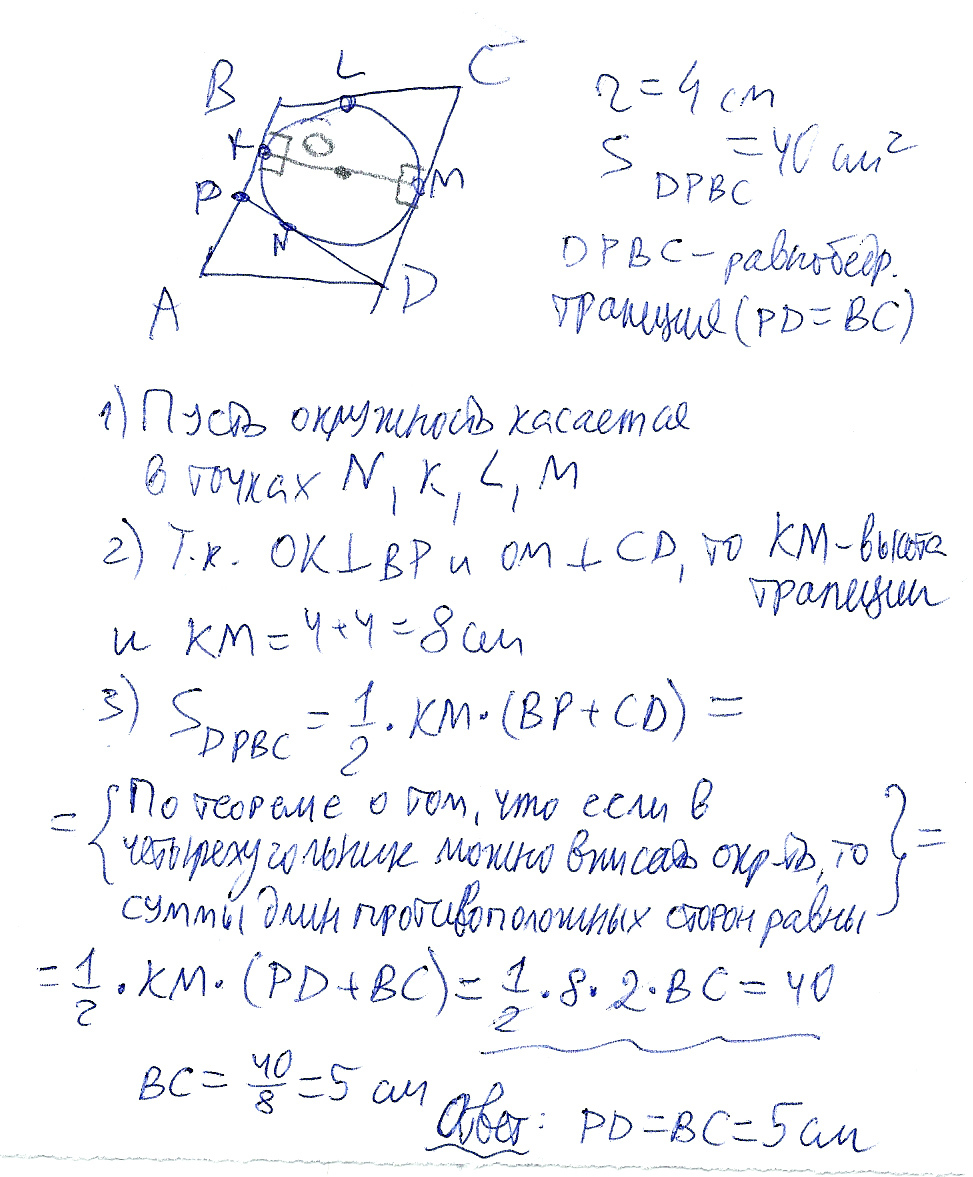 B L C
K O
P M
N
A D
r = 4 см
S DPBC = 40 см²
DPBC – равнобедр.
трапеция (PD = BC)
1) Пусть окружность касается
в точках N, K, L, M
2) Т.к. OK ⊥ BP и OM ⊥ CD, то KM – высота
трапеции
и KM = 4+4 = 8 см
3) S DPBC = 1/2 · KM · (BP + CD) =
= { По теореме о том, что если в
четырехугольник можно вписать окр-ть, то } =
суммы длин противоположных сторон равны
= 1/2 · KM · (PD + BC) = 1/2 · 8 · 2 · BC = 40
BC = 40/8 = 5 см
Ответ: PD = BC = 5 см